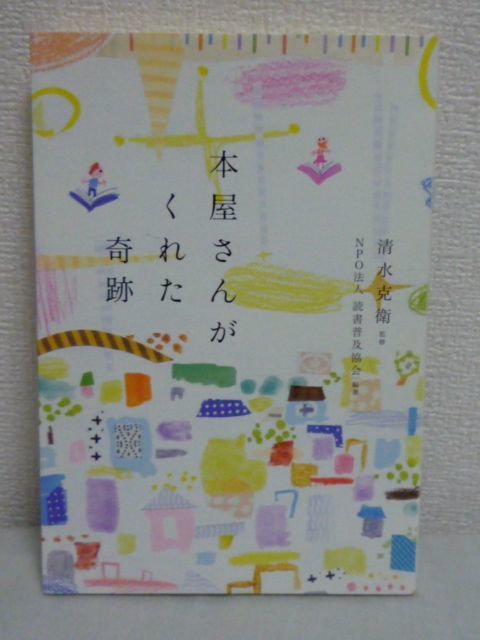 本屋さんが
くれた
奇跡
清水克衛 監修
NPO法人 読書普及協会 編著